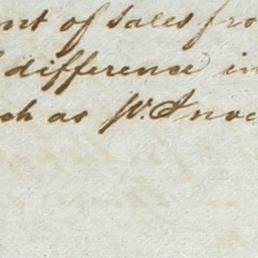 nt of sales fro
difference in
ch as W. Snoc